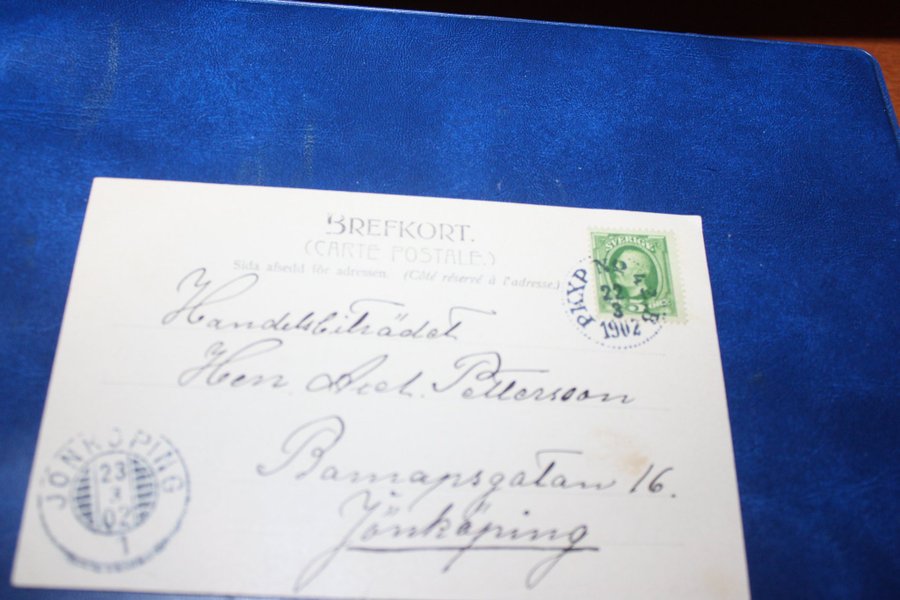 BREFKORT.
(CARTE POSTALE.)
Sida afsedd för adressen. (Côté réservé à l'adresse.)
SVERIGE
PKXP
22
3
1902
Handelsbiträdet
Herr Pettersson
Barnapsgatan 16.
Jönköping
JÖNKÖPING
23
3
02
1